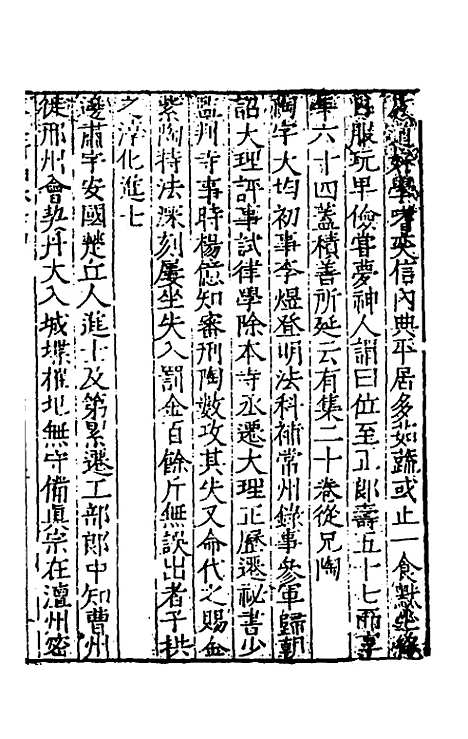 道好學嗜奕信內典平居多茹蔬或止一食默坐終
日服玩卑儉嘗夢神人謂曰位至正郎壽五十七而享
年六十四蓋積善所延云有集二十卷從兄陶
陶字大均初事李煜登明法科補常州錄事參軍歸朝
詔大理評事試律學除本寺丞遷大理正歷遷祕書少
監判寺事時楊億知審刑陶數攻其失又命代之賜金
紫陶持法深刻屢坐失入罰金百餘斤無誤出者子拱
之淳化進士
邊肅字安國楚丘人進士及第累遷工部郎中知曹州
徙邢州會契丹大入城堞摧圮無守備真宗在澶州密